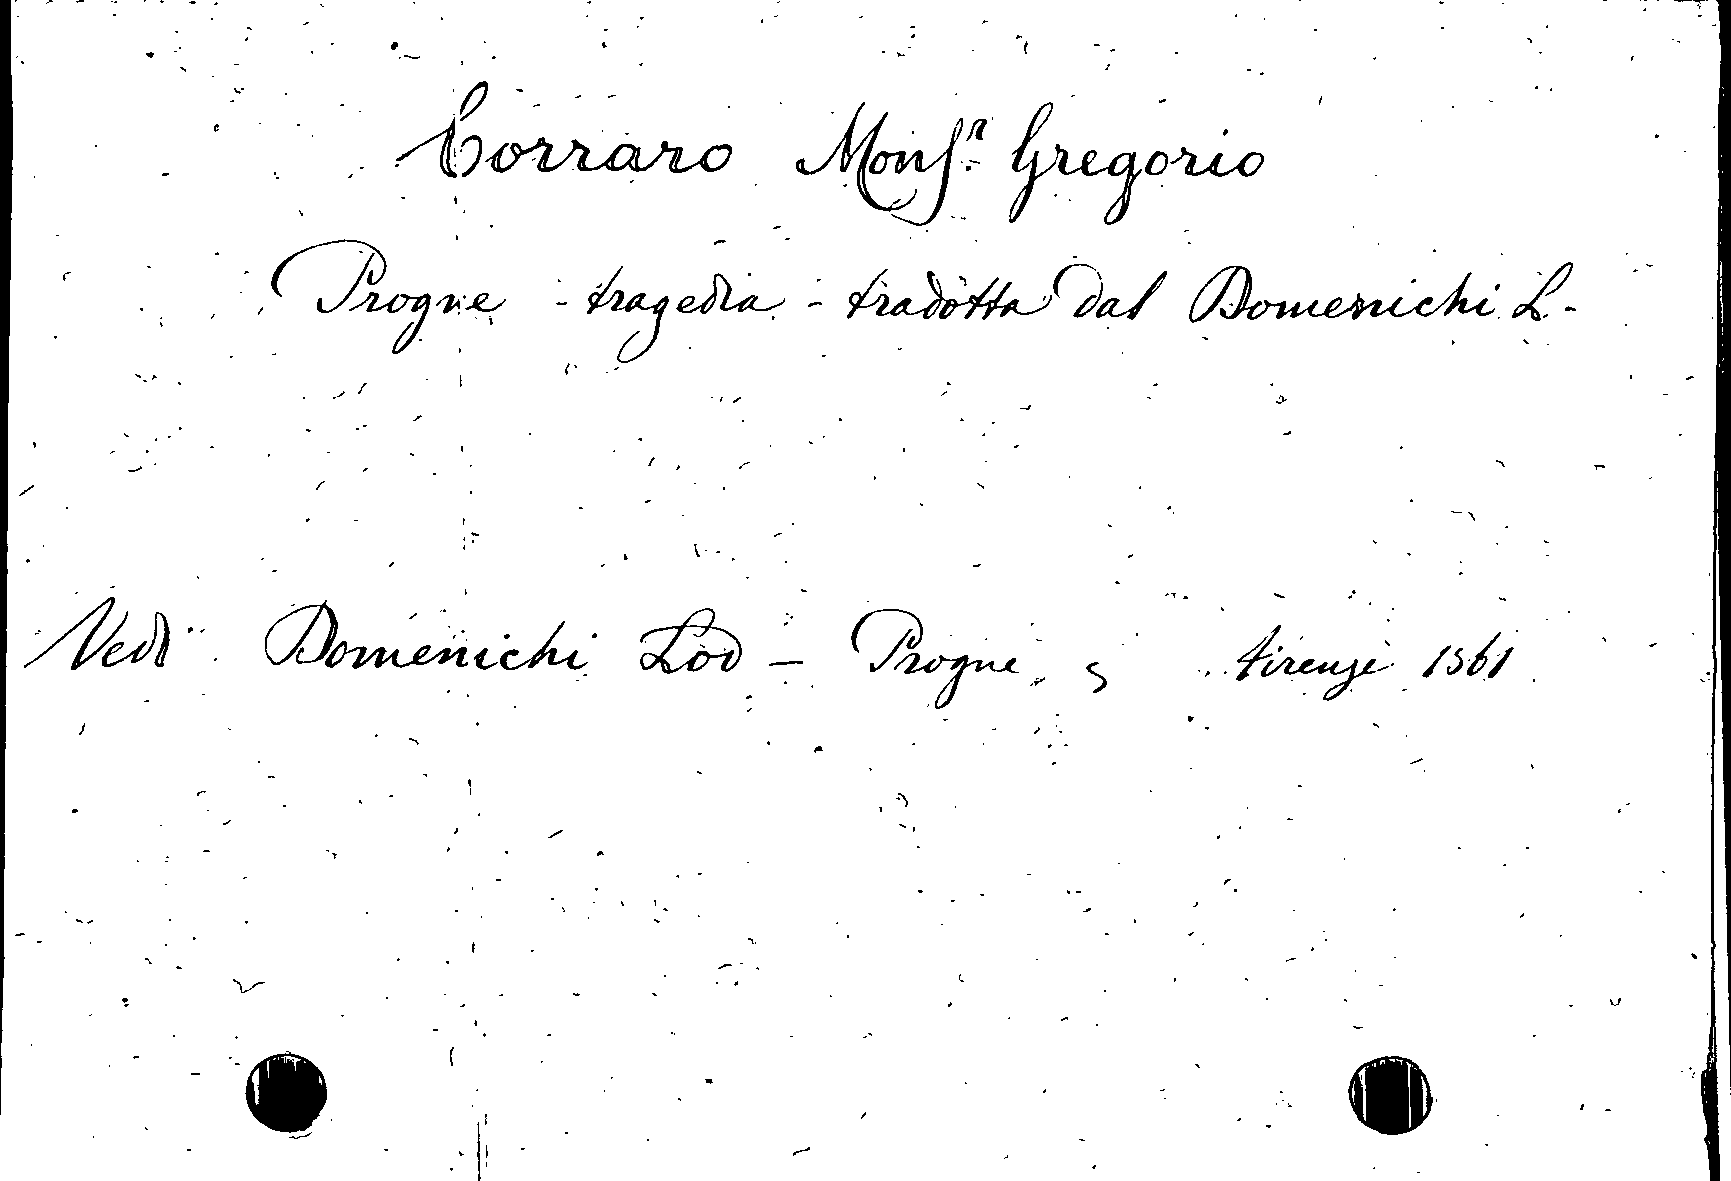 Corraro Monsʳ Gregorio
Progne - tragedia - tradotta dal Domenichi L.
Vedi Domenichi Lod - Progne, Firenze 1561